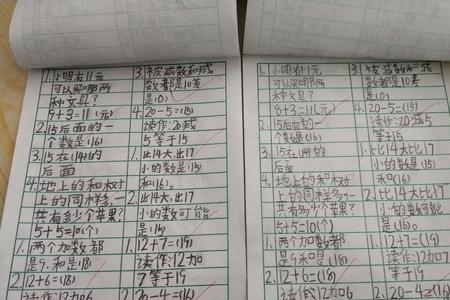 1.小明有11元
可以买哪两
种文具?
8+3=11(元)
2.15后面的一
个数是(16)
3.15在(14)的
后面
4.地上的和树
上的同样多一
共有多少个苹果?
5+5=10(个)
1.两个加数都
是9.和是(18)
2.12+6=(18)
读作:12加6
3.被减数和减
数都是10差
是(0)
4.20-5=(15)
读作:20减
5等于15
1.比14大,比17
小的数是(15)
和(16)。
2.比14大,比17
小的数可能
是(15)
1.12+7=(19)
读作:12加
7等于19
2.20-4=(16)
1.小明有11元
可以买哪两
种文具?
8+3=11(元)
2.15后面的一
个数是(16)
3.15在(14)的
后面
4.地上的和树
上的同样多一
共有多少个苹果?
5+5=10(个)
1.两个加数都
是9和是(18)
2.12+6=(18)
读作:12加6
3.被减数和减
数都是10差
是(0)
4.20-5=(15)
读作:20减5
等于15
1.比14大比17
小的数是(15)
和(16)
2.比14大比17
小的数可能
是(16)。
1.12+7=(19)
读作:12加
7等于19
2.20-4=(16)